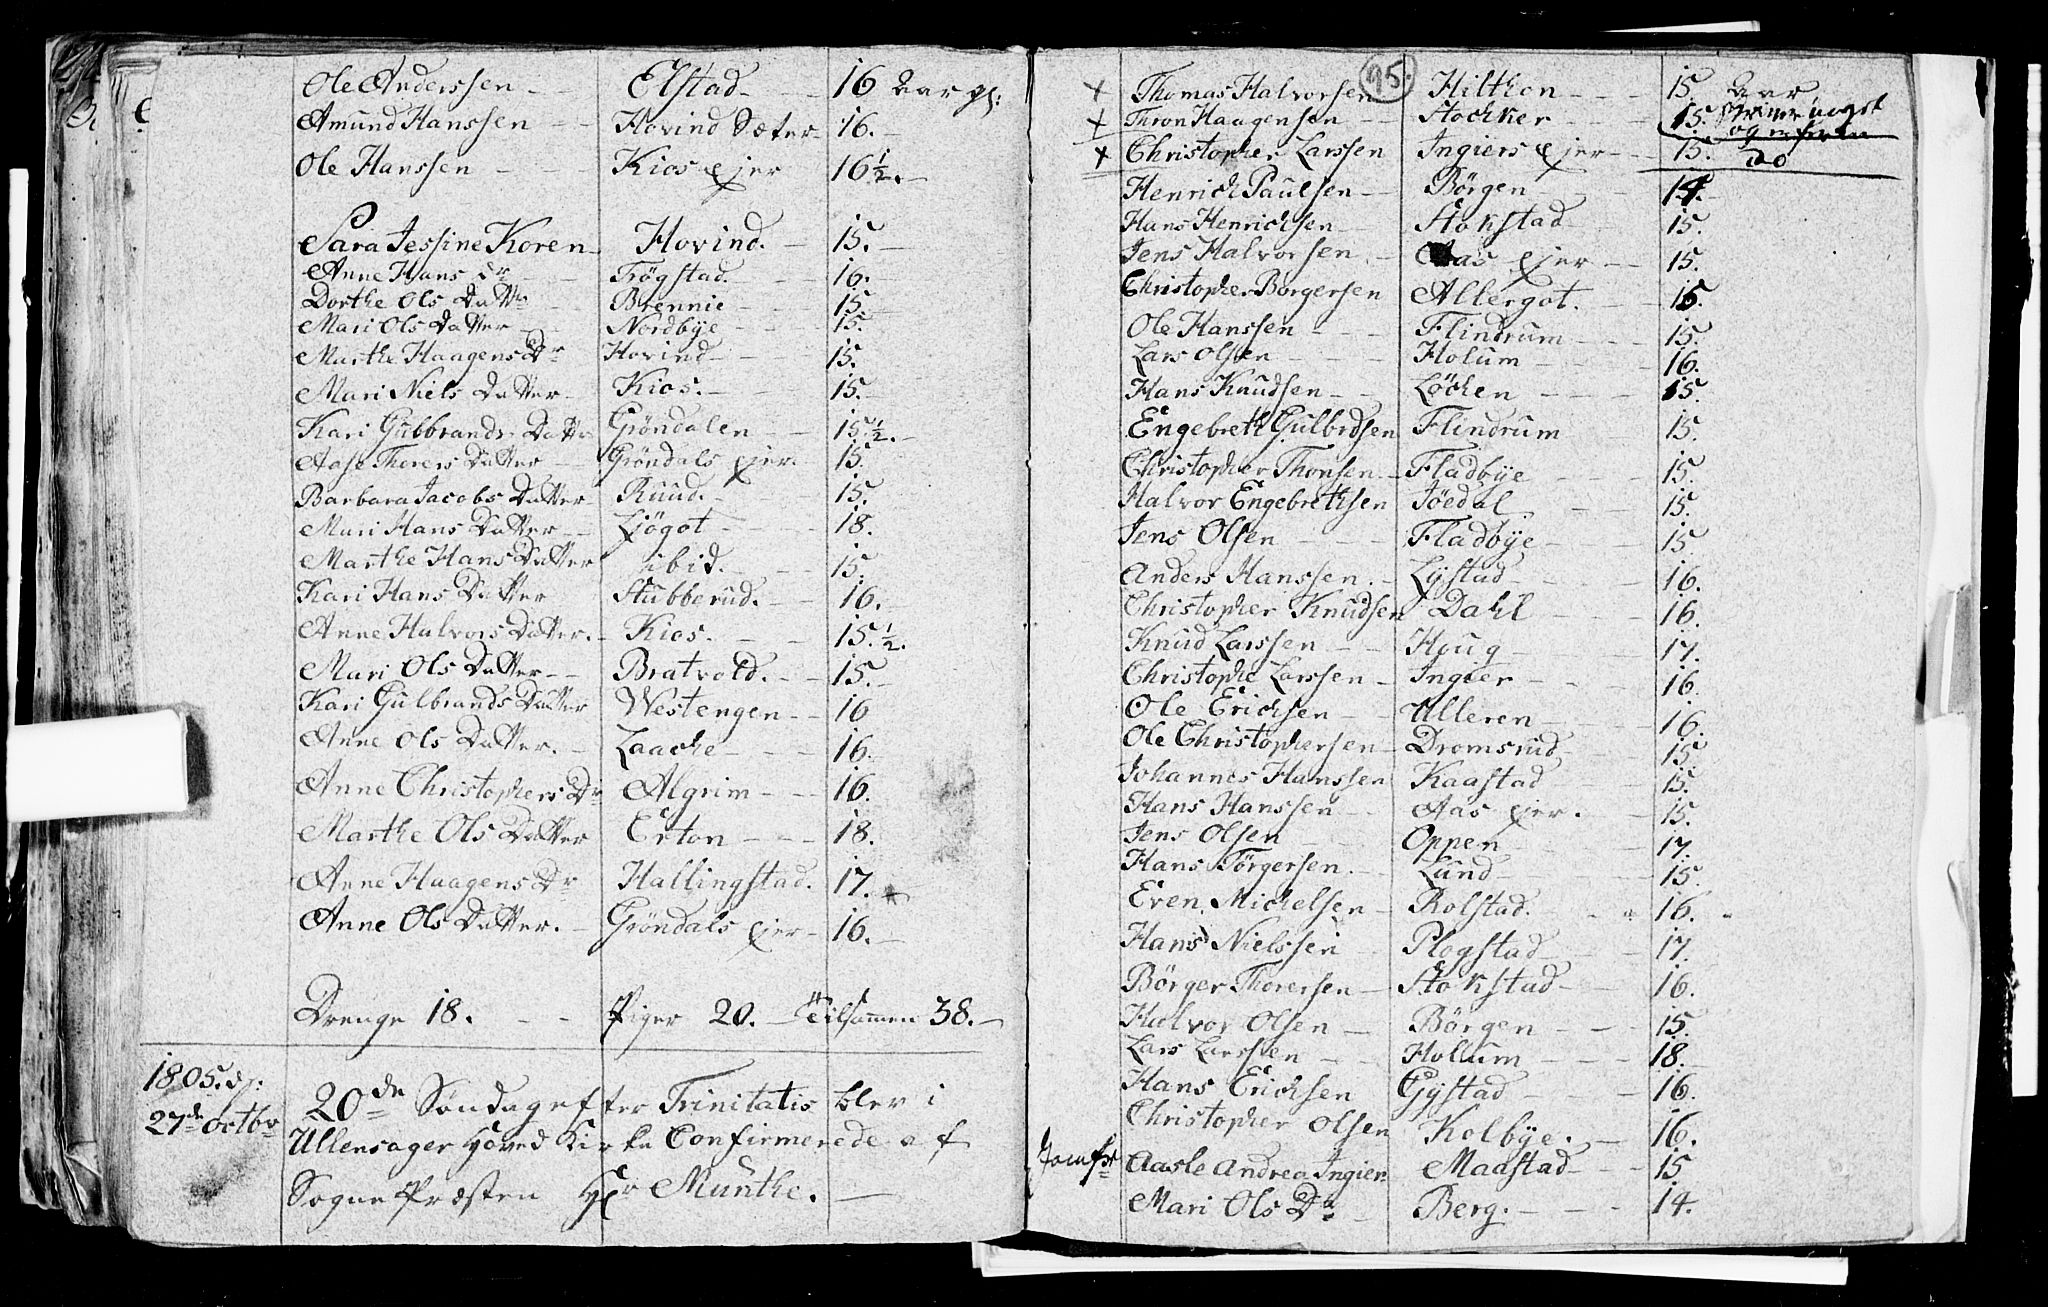 Ole Anderssen - - Elstad - - 16 Aar gl:
Amund Hanssen - - Hovind Sæter - 16. -
Ole Hanssen - - - Kios ejer 16 1/2. -
Sara Jessine Koren - Hovind. - 15. -
Anne Hans Dr - - Trögstad. - - 16. -
Dorthe Ols Dattr - Brennie - - 15.
Mari Ols Datter - - Nordbÿe - - - 15. -
Marthe Haagens Dr Hovind - - 15.
Mari Niels Datter - Kios. - - 15. -
Kari Gubbrands Datter Gröndalen - - 15 1/2. -
Aase Thorers Datter - - Gröndals ejer. - 15.
Barbara Jacobs Datter - Ruud. - - 15. -
Mari Hans Datter - - Ljögot - - - 18.
Marthe Hans Datter ibid. - - - 15.
Kari Hans Datter Stubberud. - - 16. -
Anne Halvors Datter. - Kios. - - - 15. 1/2.
Mari Ols Datter - - Bratvold. - - 15. -
Kari Gulbrands Datter Westengen - - 16
Anne Ols Datter. - Laache - - - 16.
Anne Christophers Dr Algrim - - - 16.
Marthe Ols Datter Erton - - - 18.
Anne Haagens Dr Hallingstad. 17. -
Anne Ols Datter. - Gröndals ejer - 16. -
Drenge 18. - - Piger 20. - Tilsammen 38. -
1805. d.
27de Octbr
20de Söndag efter Trinitatis blev i
Ullensager Hoved Kirke Confirmerede af
Sogne Præsten Hr Munthe. -
95.
x Thomas Halvorsen Hilthon - - - 15. Aar
x Thron Haagensen - - Stochker - - - 15.
x Christopher Larssen Ingiers ejer - - 15. do
Henrich Paulsen - - Börgen - - - 14. -
Hans Henrichsen - - Stokstad - - 15.
Jens Halvorsen. - Aas ejer - - - 15.
Christopher Borgersen Allergot. - - - 15.
Ole Hanssen - - - Flindrum - - - 15.
Lars Olsen - - - Holum - - - 16.
Hans Knudsen - - Löchen - - - 15.
Engebreth Gulbrdsen Flindrum - - 15.
Christopher Thorsen. - Fladbÿe - - - 15.
Halvor Engebrethsen Jöedal - - 15.
Jens Olsen - - - Fladbÿe - - - 15
Anders Hanssen. - Lÿstad - - - - 16.
Christopher Knudsen Dahl - - - 16.
Knud Larssen - - Houg - - - - 17.
Christophe Larssen - Ingier - - - 16.
Ole Erichsen - - Ulleren - - - - 16.
Ole Christophersen - Dromsrud - - - 15.
Johannes Hanssen Kaastad - - - 15.
Hans Hanssen - - Aas ejer. - - 15.
Jens Olsen - - Oppen - - - - 17.
Hans Törgersen. - Lund - - - - 15.
Even Michelsen - Rolstad. - - - 16. -
Hans Nielssen - Plogstad - - - 17.
Börger Thorersen - Stokstad - - - 16.
Halvor Olsen - - Börgen - - - 15.
Lars Larssen - - Hollum - - - - 18.
Hans Erichsen Gÿstad - - - - 16.
Christopher Olsen Kolbÿe. - - 16.
Jomfr Aasle Andrea Ingier Maastad - - - 15
Mari Ols Dr - Berg. - - - - 14.